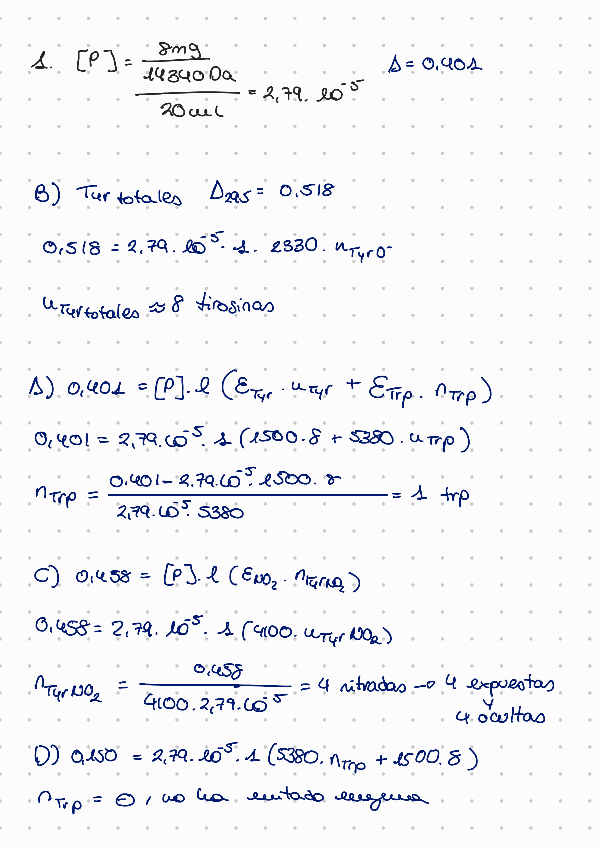 1. [P] = 8mg / 14340 Da / 20 mL = 2,79 . 10^-5   A = 0,401
B) Tyr totales A295 = 0,518
0,518 = 2,79 . 10^-5 . 1 . 2330 . nTyrO-
nTyr totales ≈ 8 tirosinas
A) 0,401 = [P] . l (ETyr . nTyr + ETrp . nTrp)
0,401 = 2,79 . 10^-5 . 1 (1500 . 8 + 5380 . nTrp)
nTrp = 0,401 - 2,79 . 10^-5 . 1500 . 8 / 2,79 . 10^-5 . 5380 = 1 trp
C) 0,458 = [P] . l (ENO2 . nTyrNO2)
0,458 = 2,79 . 10^-5 . 1 (4100 . nTyrNO2)
nTyrNO2 = 0,458 / 4100 . 2,79 . 10^-5 = 4 nitradas → 4 expuestas
y
4 ocultas
D) 0,150 = 2,79 . 10^-5 . 1 (5380 . nTrp + 1500 . 8)
nTrp = 0, no ha